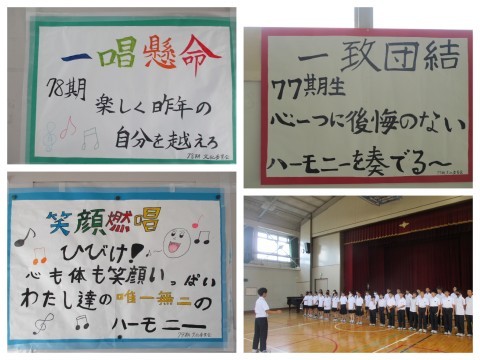 一唱懸命
78期
楽しく昨年の
自分を越えろ
一致団結
77期生
心一つに後悔のない
ハーモニーを奏でる〜
笑顔燃唱
ひびけ!
心も体も笑顔いっぱい
わたし達の唯一無二の
ハーモニー